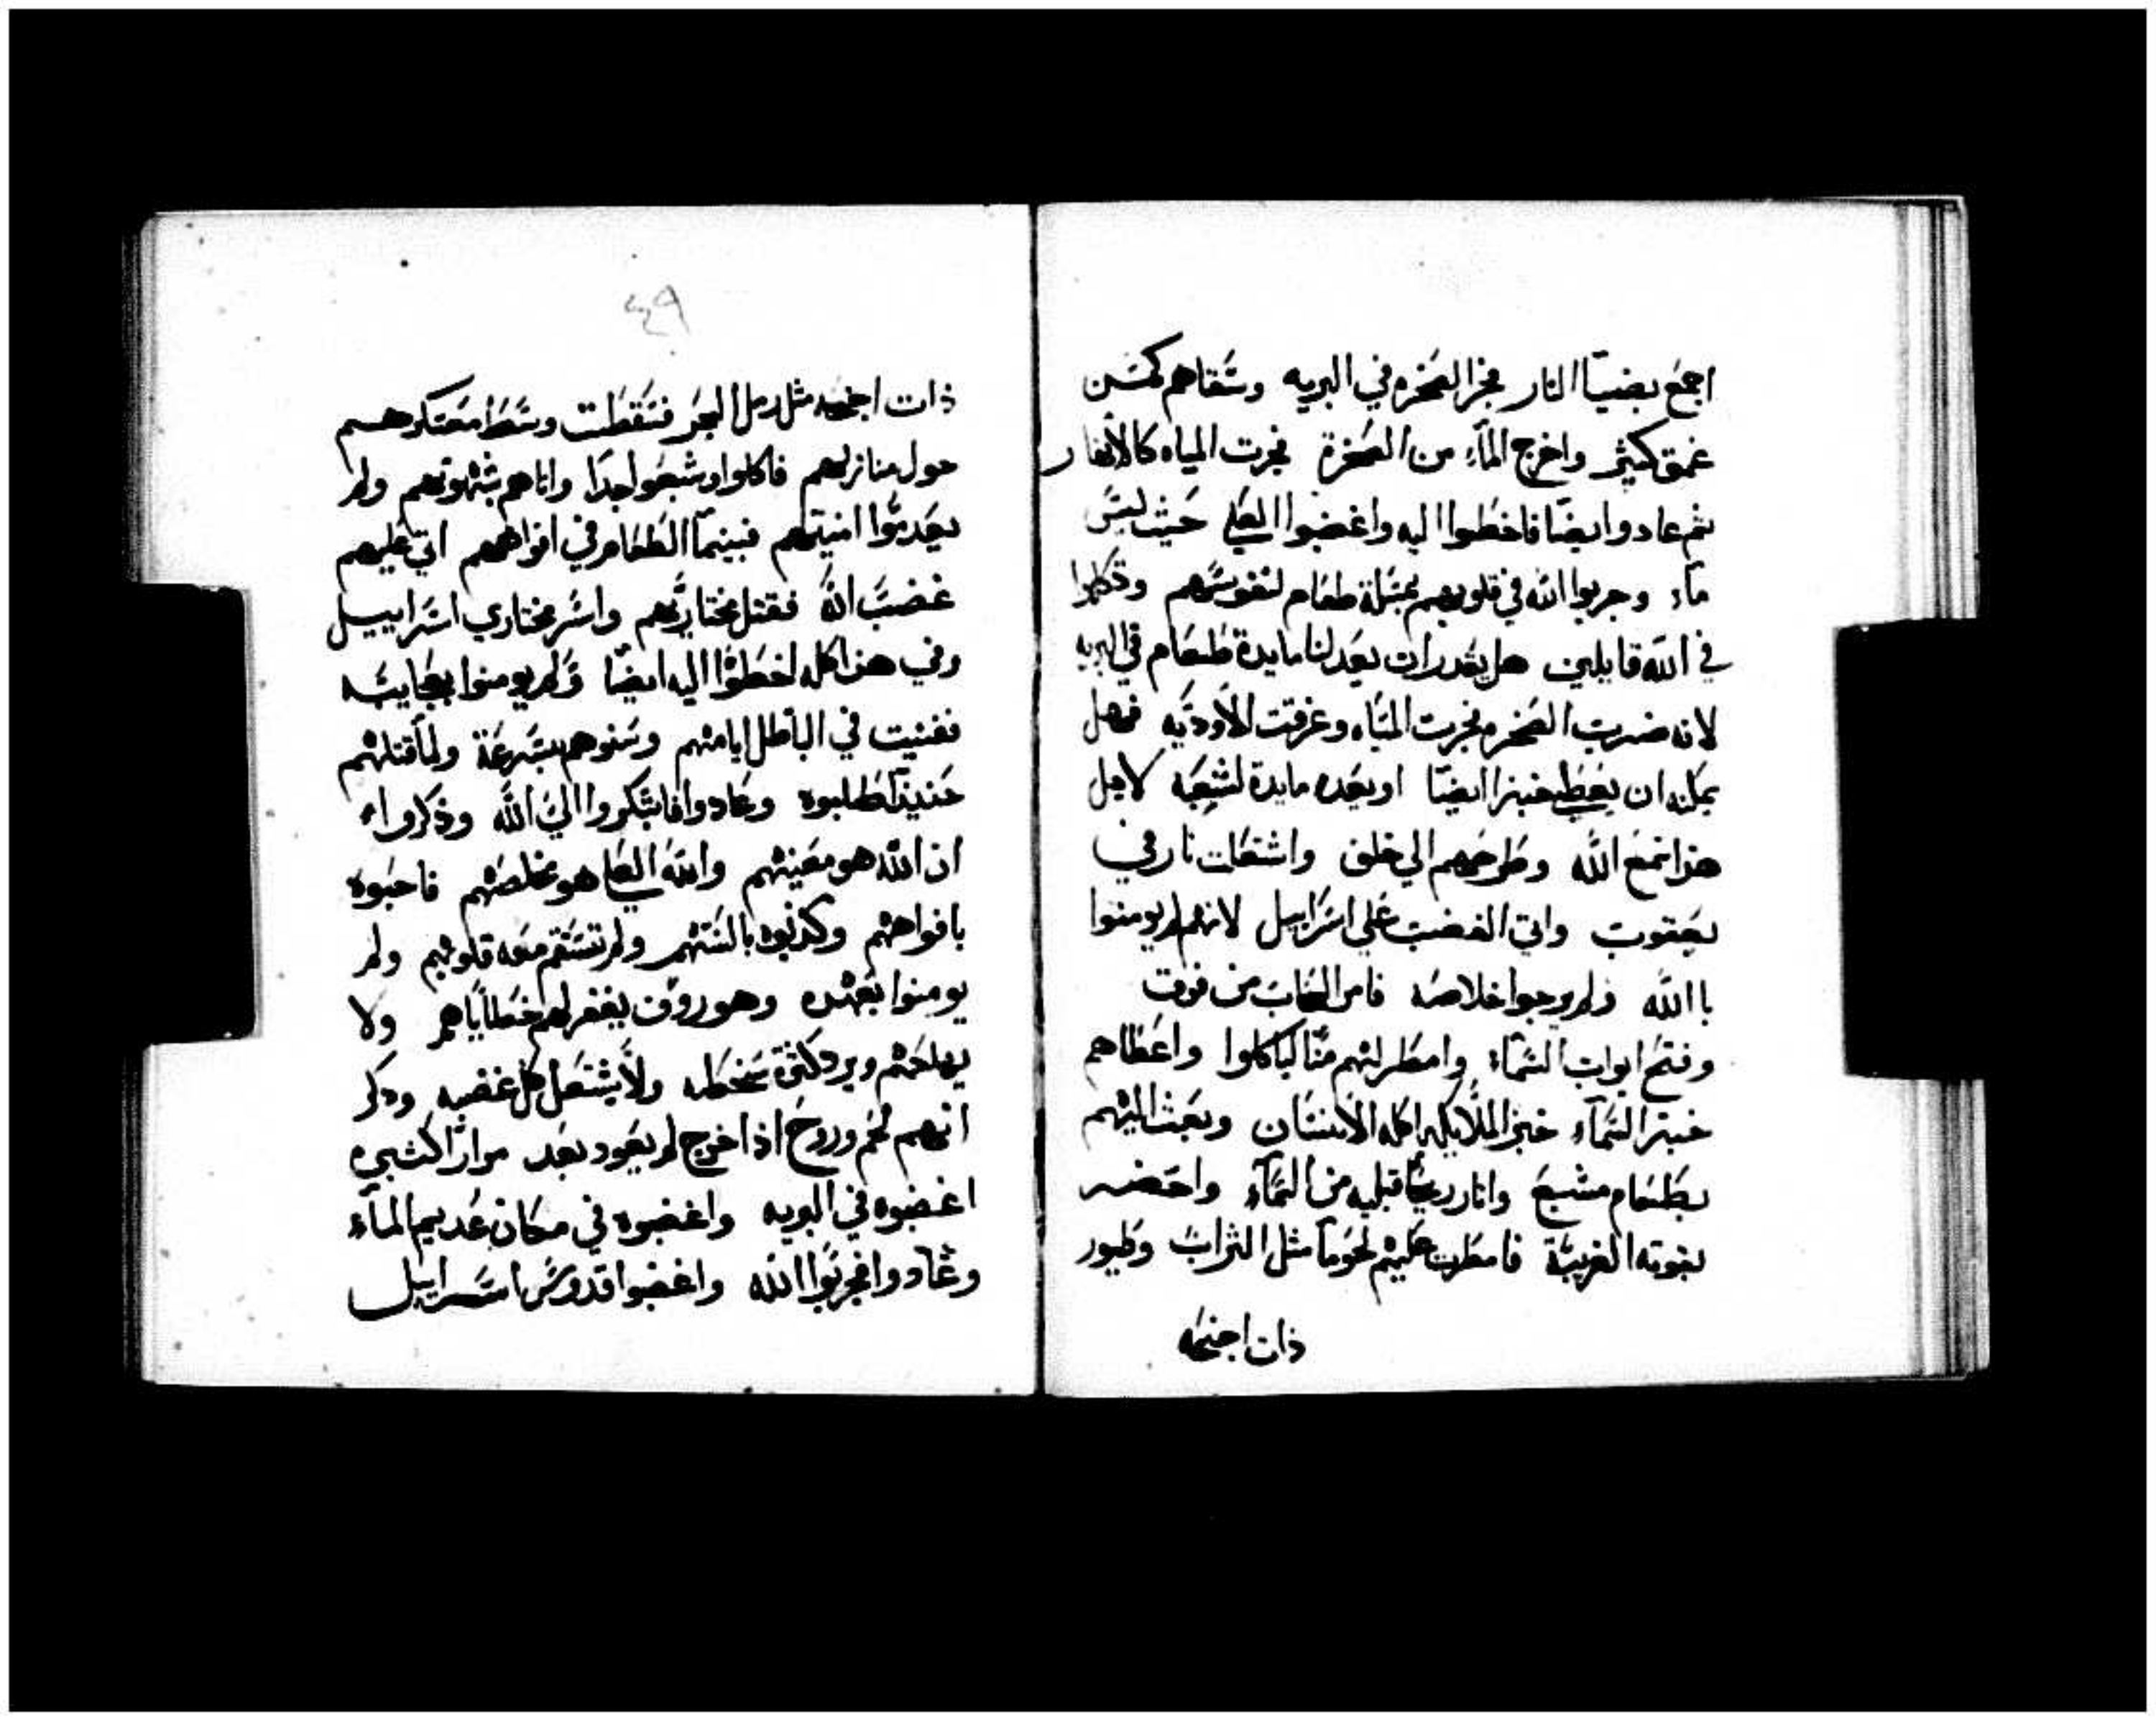 اجمع بضيا النار فجر الصخره في البريه وسقاهم كمن
عمق كثير واخرج الماء من الصخرة فجرت المياه كالأنهار
ثم عادوا ايضا فاخطوا اليه واغضبوا العلي حيث ليس
ماء وجربوا الله في قلوبهم بمسلة طعام لنفوسهم وتكلموا
في الله قايلين هل يقدر ان يعد لنا مايدة طعام في البريه
لانه ضرب الصخره فجرت المياه وغرقت الأوديه فهل
يمكنه ان يعطي خبزا ايضا او يعد مايدة لشعبه لاجل
هذا سمع الله وطرحهم الي خلف واشتعلت نار في
يعقوب واتي الغضب علي اسراييل لانهم لم يومنوا
باالله ولم يرجوا خلاصه فامر السحاب من فوق
وفتح ابواب السماء وامطر لهم منا لياكلوا واعطاهم
خبز السماء خبز الملايكه اكله الانسان وبعث اليهم
بطعام مشبع واثار ريحا قبليه من السماء واحضر
بقوته الغربية فامطرت عليهم لحوما مثل التراب وطيور
ذات اجنحه
٤٩
ذات اجنحه مثل رمل البحر فسقطت وسط معسكرهم
حول منازلهم فاكلوا وشبعوا جدا واتاهم بشهوتهم ولم
يعدموا امنيتهم فبينما الطعام في افواههم اتي عليهم
غضب الله فقتل مختاريهم واسر مختاري اسراييل
وفي هذا كله اخطوا اليه ايضا ولم يومنوا بعجايبه
ففنيت في الباطل ايامهم وسنوهم بسرعة ولما قتلهم
حنيذا طلبوه وعادوا فابتكروا الي الله وذكروا
ان الله هو معينهم والله العلي هو مخلصهم فاحبوه
بافواههم وكذبوه بالسنتهم ولم تستقم معه قلوبهم ولم
يومنوا بعهده وهو رووف يغفر لهم خطاياهم ولا
يهلكهم ويرد كثرة سخطه ولا يشتعل كل غضبه وذكر
انهم لحم وروح اذا خرج لم يعود بعد مرارا كثيره
اغضبوه في البريه واغضبوه في مكان عديم الماء
وعادوا فجربوا الله واغضبوا قدوس اسراييل